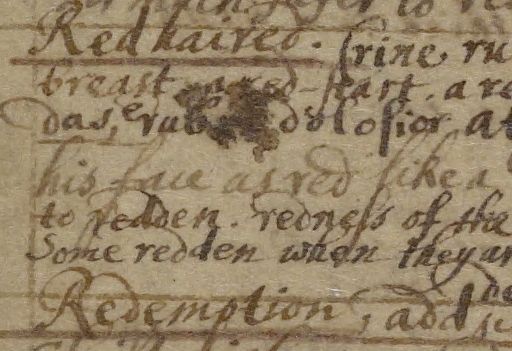 Redhaired. Crine ru
breast a red-hart. a re
das, e rub dolosior at
his face as red like a
to redden. redness of the
Some redden when they ar
Redemption, add